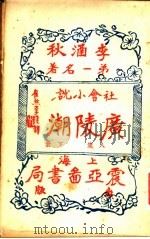 李涵秋
第一名著
社會小說
廣陵潮
上海
震亞圖書局
版